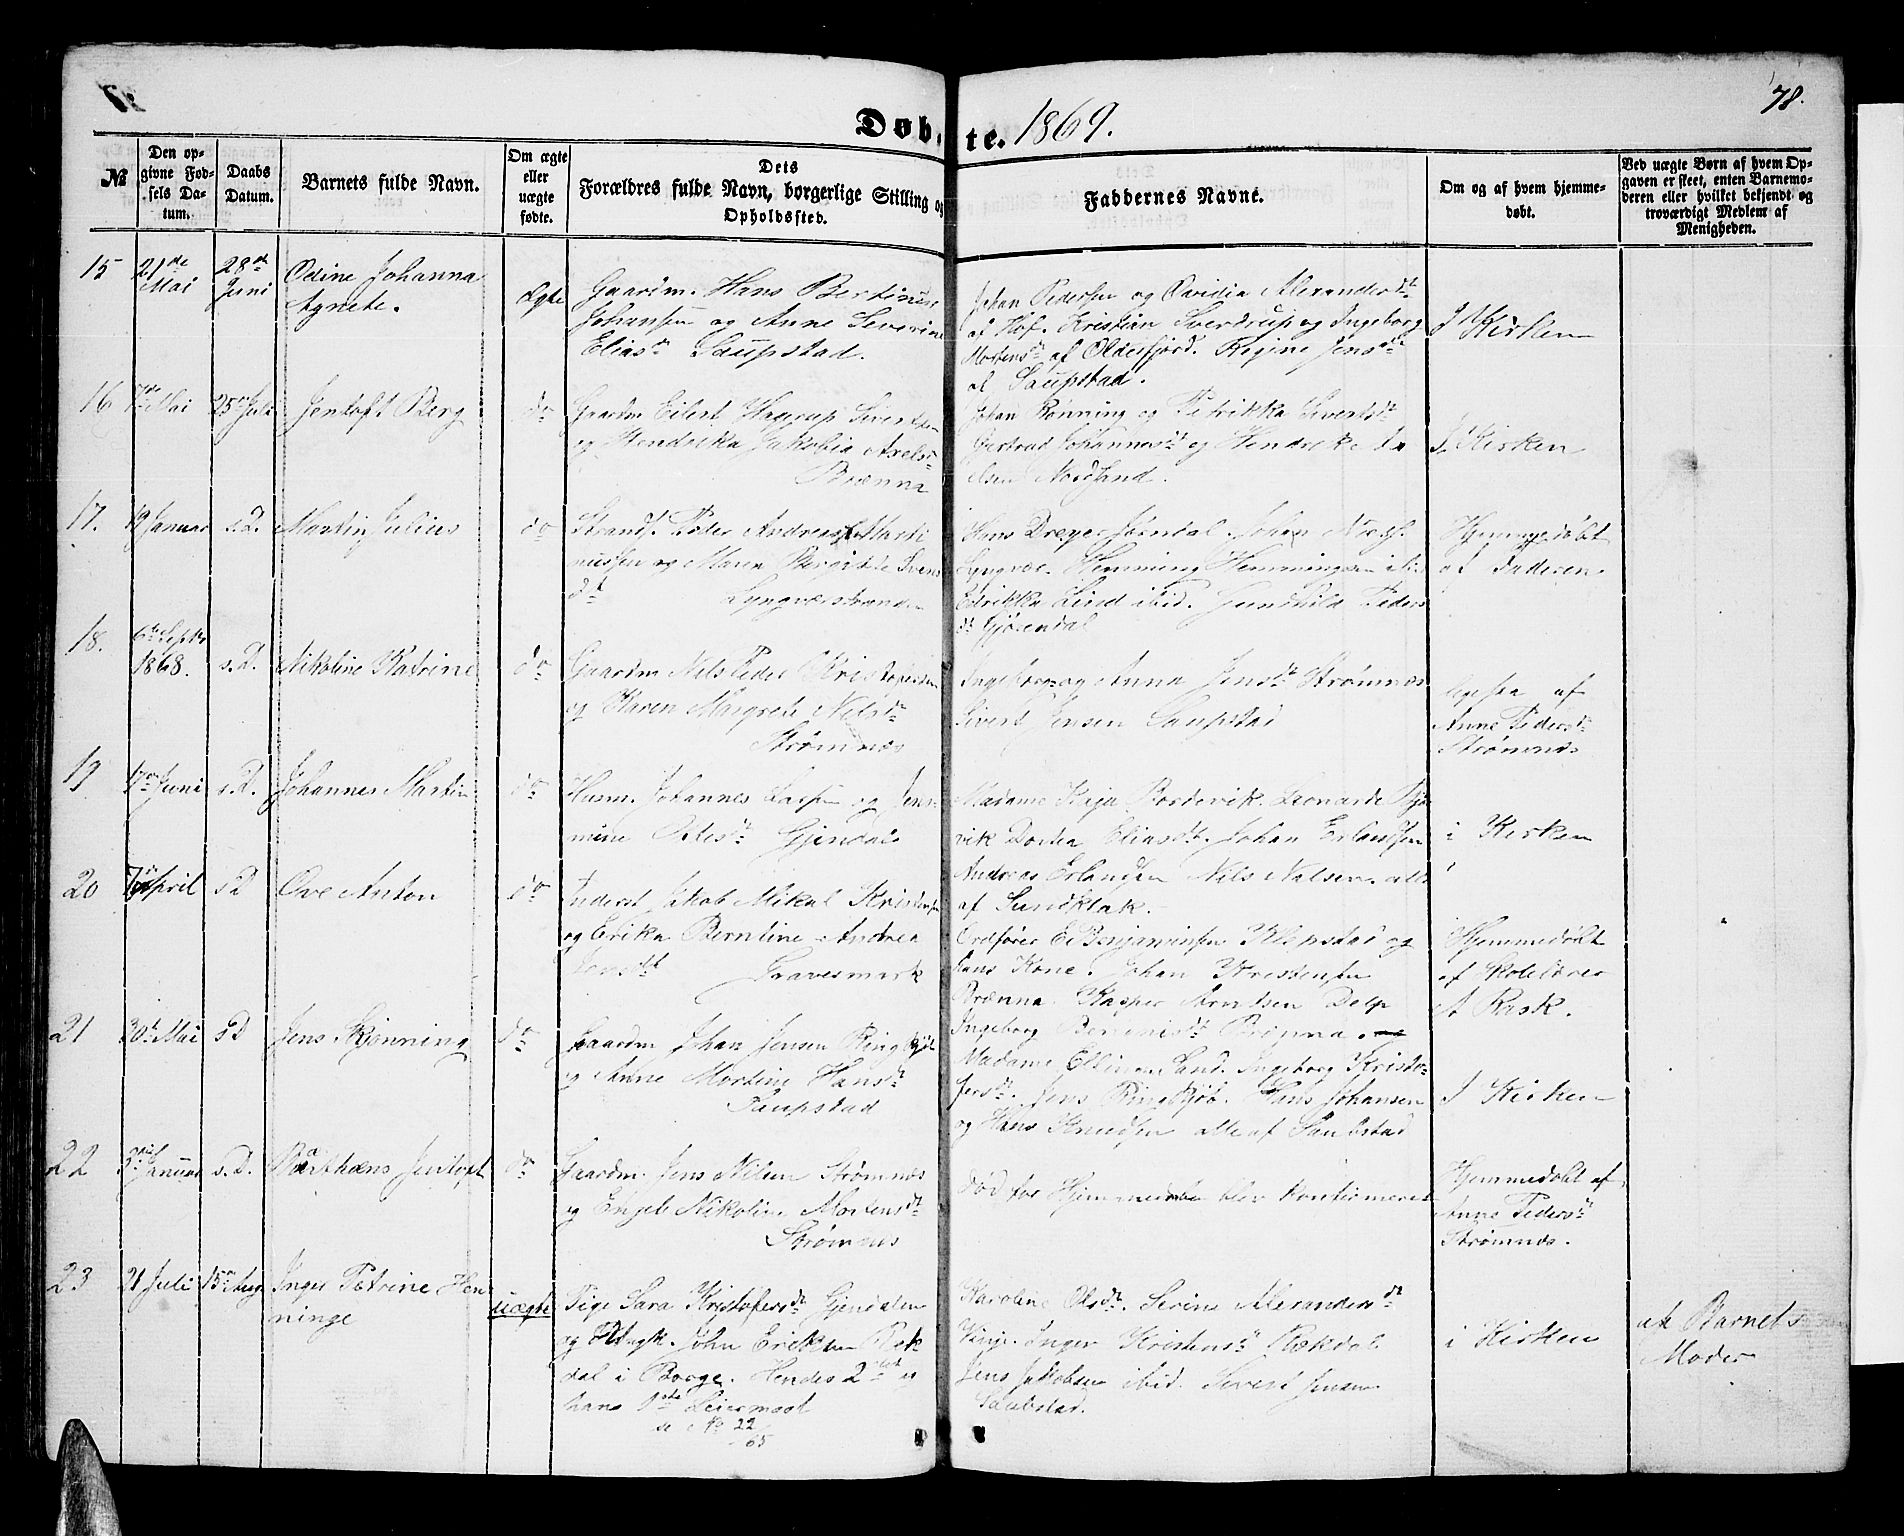 78.
Døbte. 1869.
№
Den opgivne Fødsels Datum.
Daabs Datum.
Barnets fulde Navn.
Om ægte eller uægte fødte.
Dets Forældres fulde Navn, borgerlige Stilling og Opholdssted.
Faddernes Navne.
Om og af hvem hjemmedøbt.
Ved uægte Børn af hvem Opgaven er skeet, enten Barnemoderen eller hvilket bekjendt og troværdigt Medlem af Menigheden.
15
21de Mai
28de Juni
Odine Johanna
Agnete.
Ægte
Gaardm. Hans Bertinus
Johansen og Anne Severine
Eliasdt Saupstad.
Johan Pedersen og Ovidia Alexandersdt
af Hof. Kristian Sverdrup og Ingeborg
Mortensdt af Olderfjord. Regine Jensdt
af Saupstad.
I Kirken
16
7de Mai
25de Juli
Jentoft Berg
do
Gaardm Eilert Hagerup Sivertsen
og Hendrika Jakobia Axelsdt
Brenna
Johan Rønning og Petrikka Sivertsdt
Gertrud Johannesdt og Hendrikke
Nordsand.
I Kirken
17.
19 Januar
s.D.
Martin Julius
do
Strands. Peder Andreas Marti
nussen og Maren Birgitte Svens
dt Lyngværstranden
Hans Dreyer Jørndal. Johan
Lyngvær. Hemming Hemmingsen
Edrikka Lind ibid. Gunhild Peders
dt Gjørendal
Hjemmedøbt
af Faderen
18.
6te Septbr
1868.
s.D.
Nikoline Katrine
do
Gaardm Nils Peder Kristofersen
og Karen Margrete Nilsdt
Strømnæs
Ingeborg og Anna Jensdt Strømnæs
Sivert Jensen Saupstad
ligesaa af
Anne Pedersdt
Strømnæs
19
17de Juni
s.D.
Johannes Martin
do
Husm. Johannes Larsen og Jens-
mine Olesdt Gjendal
Madame Kaja Bordevik. Leonarde
vik Dortea Eliasdt. Johan Erlandsen
Andreas Erlandsen Nils Nilsen. alle
af Sundklak.
i Kirken
20
7de April
sD
Ove Anton
do
Inderst Jakob Mikal Kristensen
og Erika Berntine Andrea
Jensdt Gravermark
Ordfører E Benjaminsen Klepstad og
hans Kone. Johan Kristensen
Brenna. Kasper Arntsen Delp
Ingeborg Brenna.
Hjemmedøbt
af Skolelærer
A Rask.
21
30te Mai
sD
Jens Skjønning
do
Gaardm Johan Jensen Ringkjøb
og Anne Mortine Hansdt
Saupstad
Madame Elline Sand. Ingeborg Kristo-
fersdt. Jens Ringkjøb. Hans Johansen
og Hans Knudsen alle af Saubstad
I Kirken
22
Januar
s.D.
Jentoft
do
Gaardm. Jens Nilsen Strømnæs
og Engel Nikoline Mortensdt
Strømnes
død før Hjemmedaaben blev konfirmeret
Hjemmedøbt af
Anne Pedersdt
Strømnæs.
23
21 Juli
15de Aug
Inger Petrine Hen-
ninge
uægte
Pige Sara Kristofersdt Gjendalen
og Ungk. John Eriksen Bek
dal i Borge. Hendes 2det og
hans 1ste Leiermaal
se No 22
65
Karoline Olsdt. Serine Alexandersdt
Vinje. Inger Kristensdt Bækdal
Jens Jakobsen ibid. Sivert Jensen
Saubstad.
i Kirken
af Barnets
Moder